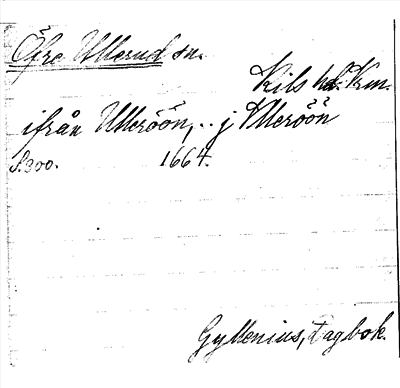 Öfre Ullerud sn.
Kils hd. Krm.
ifrån Ulleröön,.. j Ulleröön
S. 300. 1664.
Gyllenius, Dagbok.